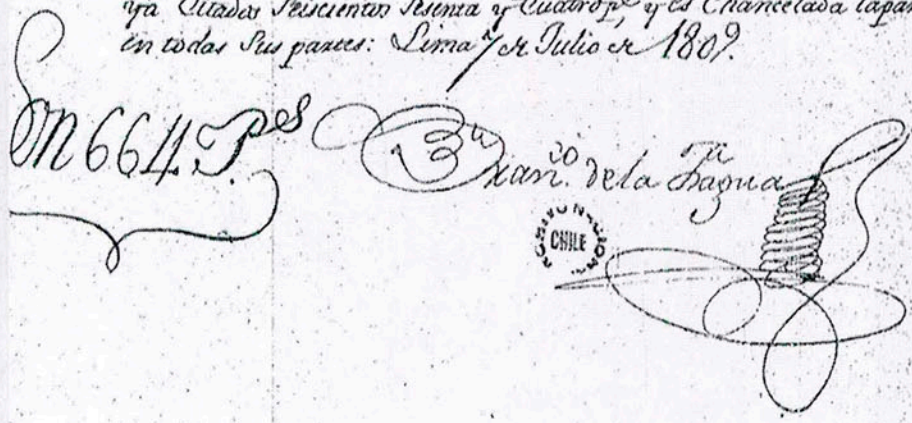 ya Citados Seiscientos Sesenta y Cuatro p.s y es Chancelada lapar
en todas Sus partes: Lima 7 de Julio de 1809.
Son 664 P.es
Fran.co de la
ARCHIVO NACIONAL
CHILE